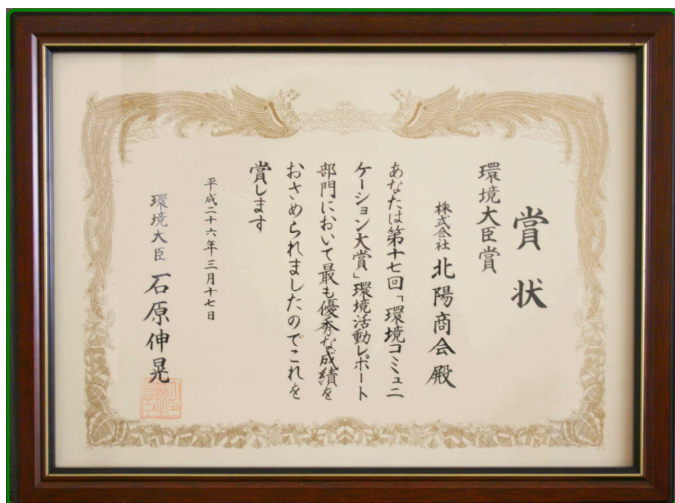 賞状
環境大臣賞
株式会社 北陽商会殿
あなたは第十七回「環境コミュニ
ケーション大賞」環境活動レポート
部門において最も優秀な成績を
おさめられましたのでこれを
賞します
平成二十六年三月十七日
環境大臣 石原伸晃